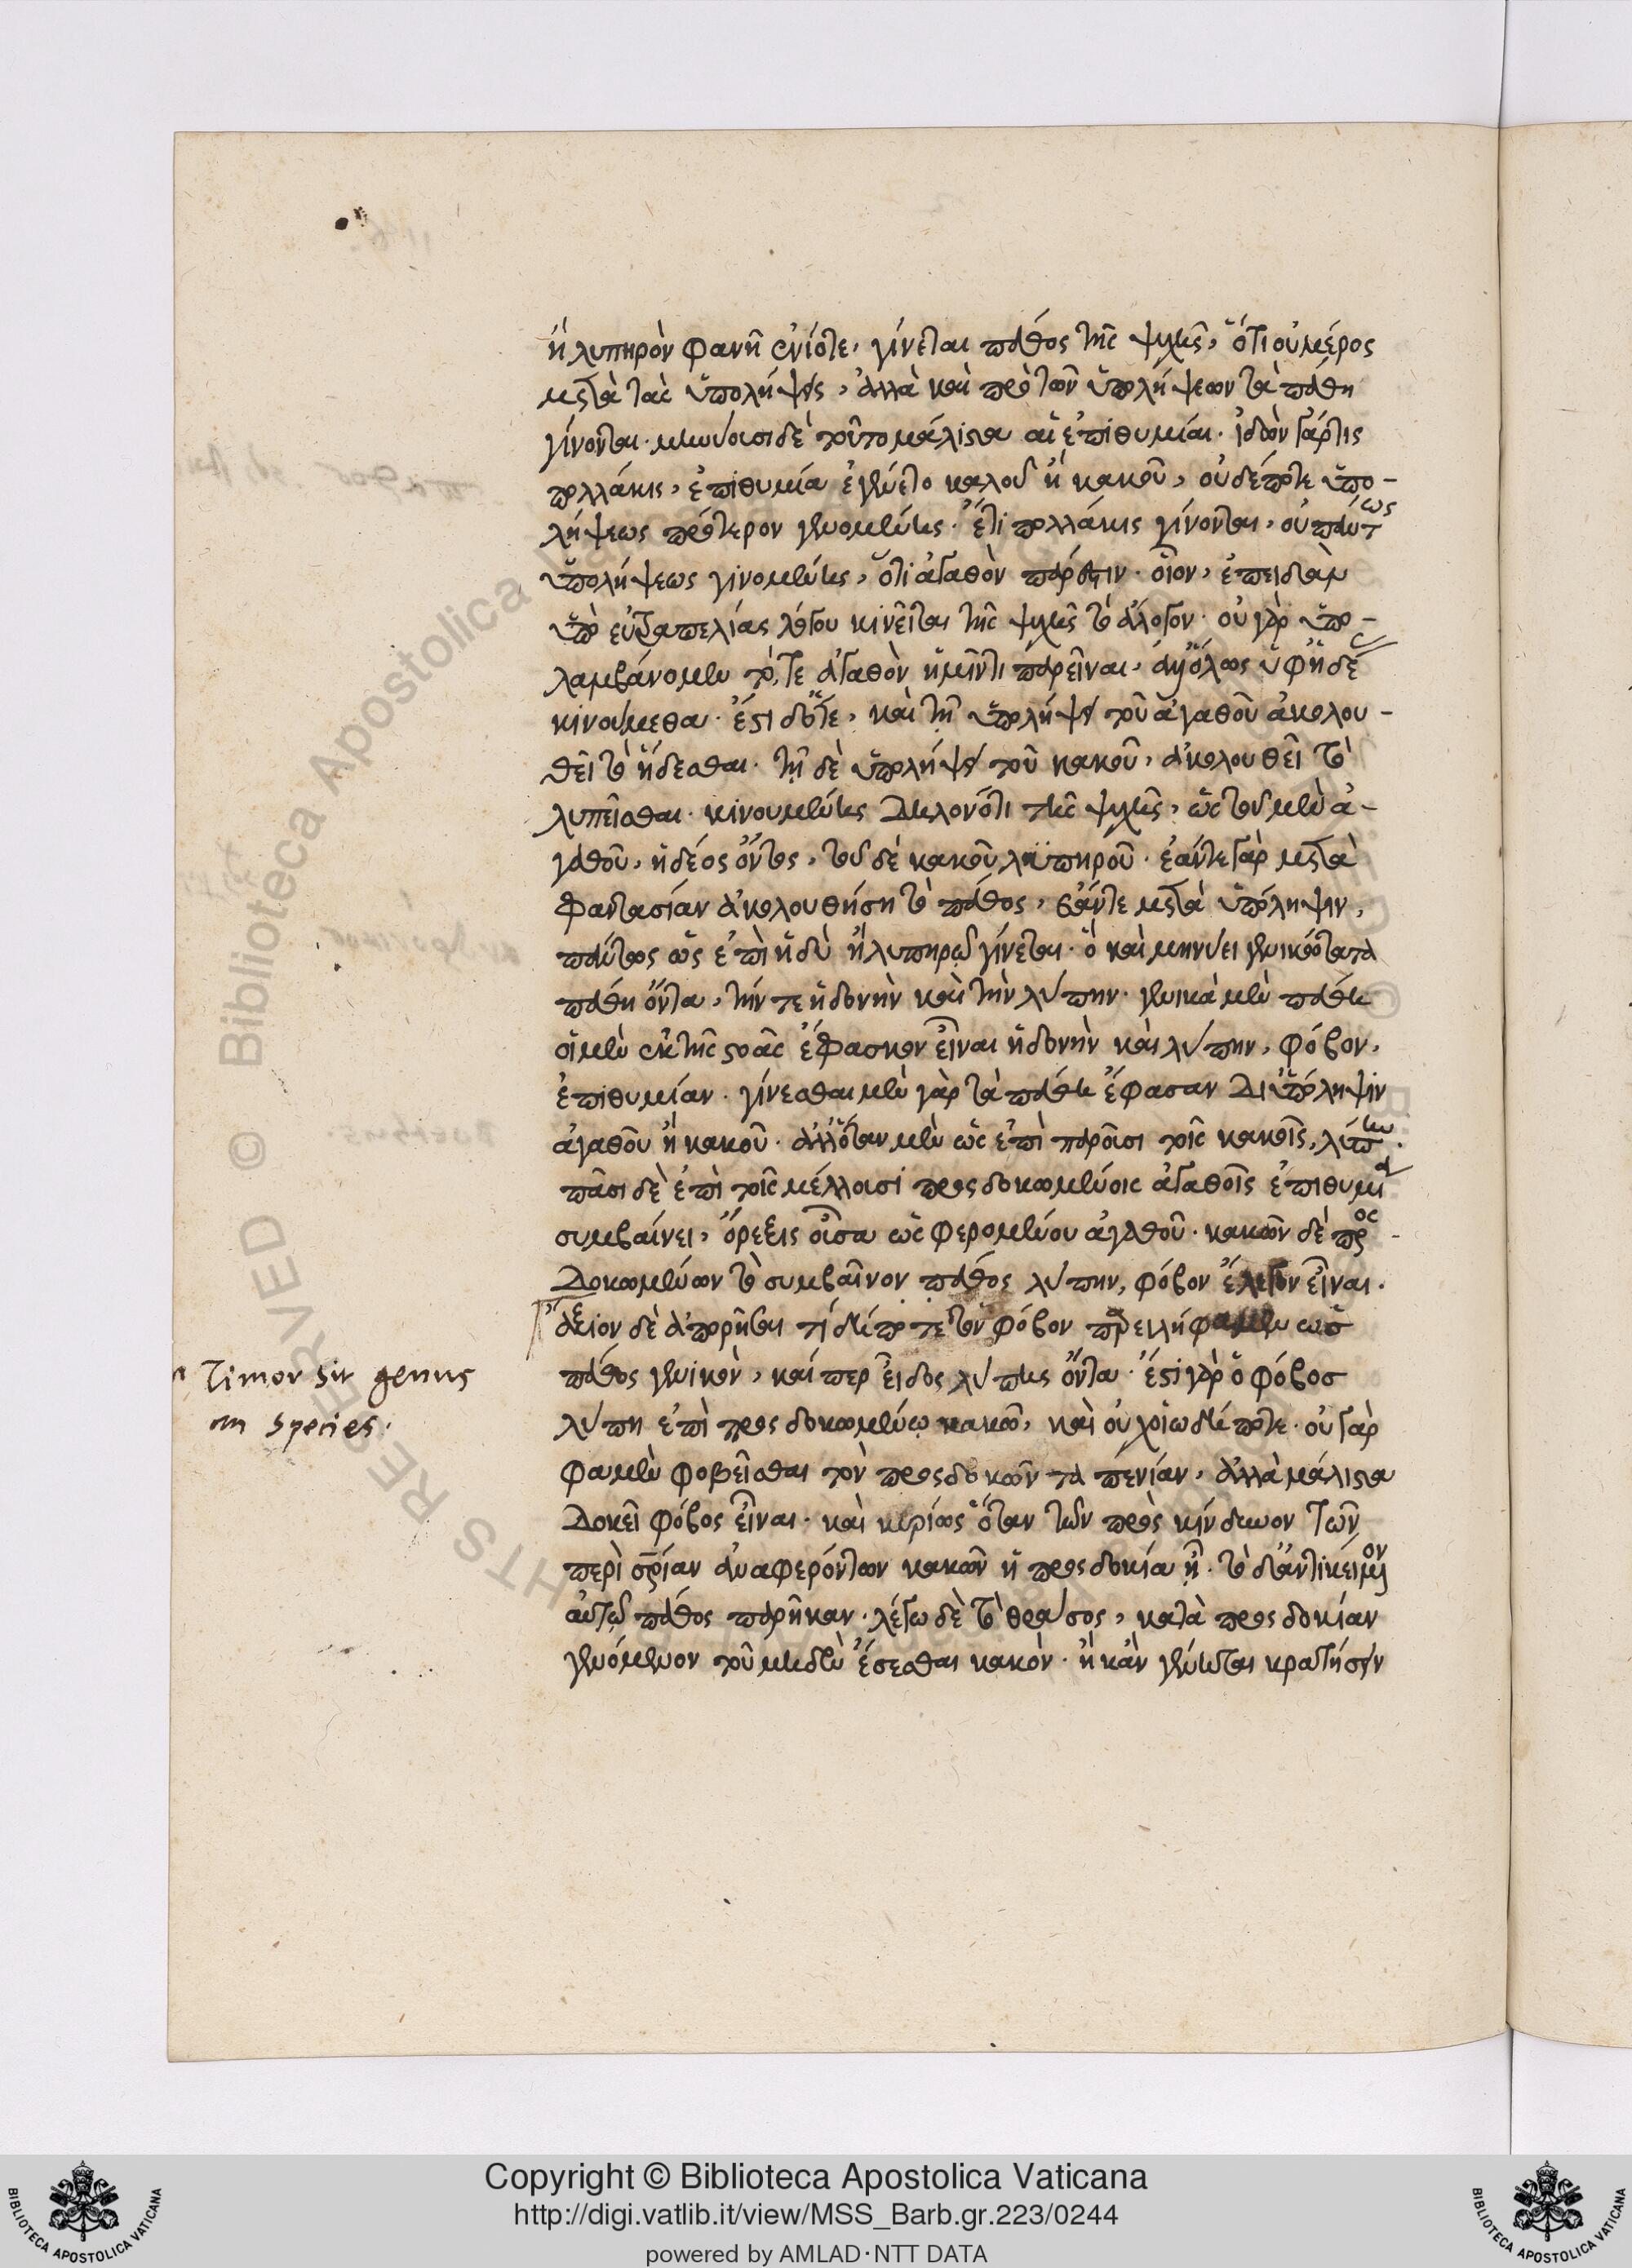 ἢ λυπηρὸν φανῇ ἐνίοτε, γίνεται πάθος τῆς ψυχῆς, ὅτι οὐ μέρος
μετὰ τὰς ὑπολήψεις, ἀλλὰ καὶ πρὸ τῶν ὑπολήψεων τὰ πάθη
γίνονται. μηνύουσι δὲ τοῦτο μάλιστα αἱ ἐπιθυμίαι. ἰδὸν γάρ τις
πολλάκις, ἐπιθυμία ἐγένετο καλοῦ ἢ κακοῦ, οὐδέποτε ὑπο-
λήψεως πρότερον γενομένης. ἔτι πολλάκις γίνονται, οὐ πάντως
ὑπολήψεως γινομένης, ὅτι ἀγαθὸν πάρεστιν. οἷον, ἐπειδὰν
ὑπὸ εὐτραπελίας λόγου κινεῖται τῆς ψυχῆς τὸ ἄλογον. οὐ γὰρ ὑπο-
λαμβάνομεν τό, τε ἀγαθὸν ἡμῖν τι παρεῖναι, ὅλως ὑφ' ἡδε
κινούμεθα. ἔστι δ' ὅτε, καὶ τῇ ὑπολήψει τοῦ ἀγαθοῦ ἀκολου-
θεῖ τὸ ἥδεσθαι. τῇ δὲ ὑπολήψει τοῦ κακοῦ, ἀκολουθεῖ τὸ
λυπεῖσθαι. κινουμένης δηλονότι τῆς ψυχῆς, ὡς τοῦ μὲν ἀ-
γαθοῦ, ἡδέος ὄντος, τοῦ δὲ κακοῦ λυπηροῦ. ἐάν τε γὰρ μετὰ
φαντασίαν ἀκολουθήσῃ τὸ πάθος, ἐάν τε μετὰ ὑπόληψιν,
πάντως ὡς ἐπὶ ἡδὺ ἢ λυπηρῷ γίνεται. ὃ καὶ μηνύει γενικώτατα
πάθη ὄντα, τήν τε ἡδονὴν καὶ τὴν λύπην. γενικὰ μὲν πάθη
οἱ μὲν ἐκ τῆς στοᾶς ἔφασκον εἶναι ἡδονὴν καὶ λύπην, φόβον,
ἐπιθυμίαν. γίνεσθαι μὲν γὰρ τὰ πάθη ἔφασαν δι' ὑπόληψιν
ἀγαθοῦ ἢ κακοῦ. ἀλλ' ὅταν μὲν ὡς ἐπὶ παροῦσι τοῖς κακοῖς, λύπην.
πᾶσι δὲ ἐπὶ τοῖς μέλλουσι προσδοκωμένοις ἀγαθοῖς ἐπιθυμία
συμβαίνει, ὄρεξις οὖσα ὡς φερομένου ἀγαθοῦ. κακῶν δὲ προς-
δοκωμένων τὸ συμβαῖνον πάθος λύπην, φόβον ἔλεγον εἶναι.
ἄξιον δὲ ἀπορῆσαι τί δήποτε τὸν φόβον παρειλήφαμεν ὡς
πάθος γενικὸν, καίπερ εἶδος λύπης ὄντα. ἔστι γὰρ ὁ φόβος
λύπη ἐπὶ προσδοκωμένῳ κακῷ, καὶ οὐχ οἵῳ δήποτε. οὐ γὰρ
φαμὲν φοβεῖσθαι τὸν προσδοκῶντα πενίαν, ἀλλὰ μάλιστα
δοκεῖ φόβος εἶναι. καὶ κυρίως ὅταν τῶν πρὸς κίνδυνον τῶν
περὶ σρίαν ἀναφερόντων κακῶν ἡ προσδοκία ᾖ. τὸ δ' ἀντικείμενον
αὐτῷ πάθος παρῆκαν. λέγω δὲ τὸ θράσος, κατὰ προσδοκίαν
γενόμενον τοῦ μηδὲν ἔσεσθαι κακὸν. ἢ κἂν γένηται κρατήσειν
Timor sit genus
an species.
Copyright © Biblioteca Apostolica Vaticana
http://digi.vatlib.it/view/MSS_Barb.gr.223/0244
powered by AMLAD·NTT DATA